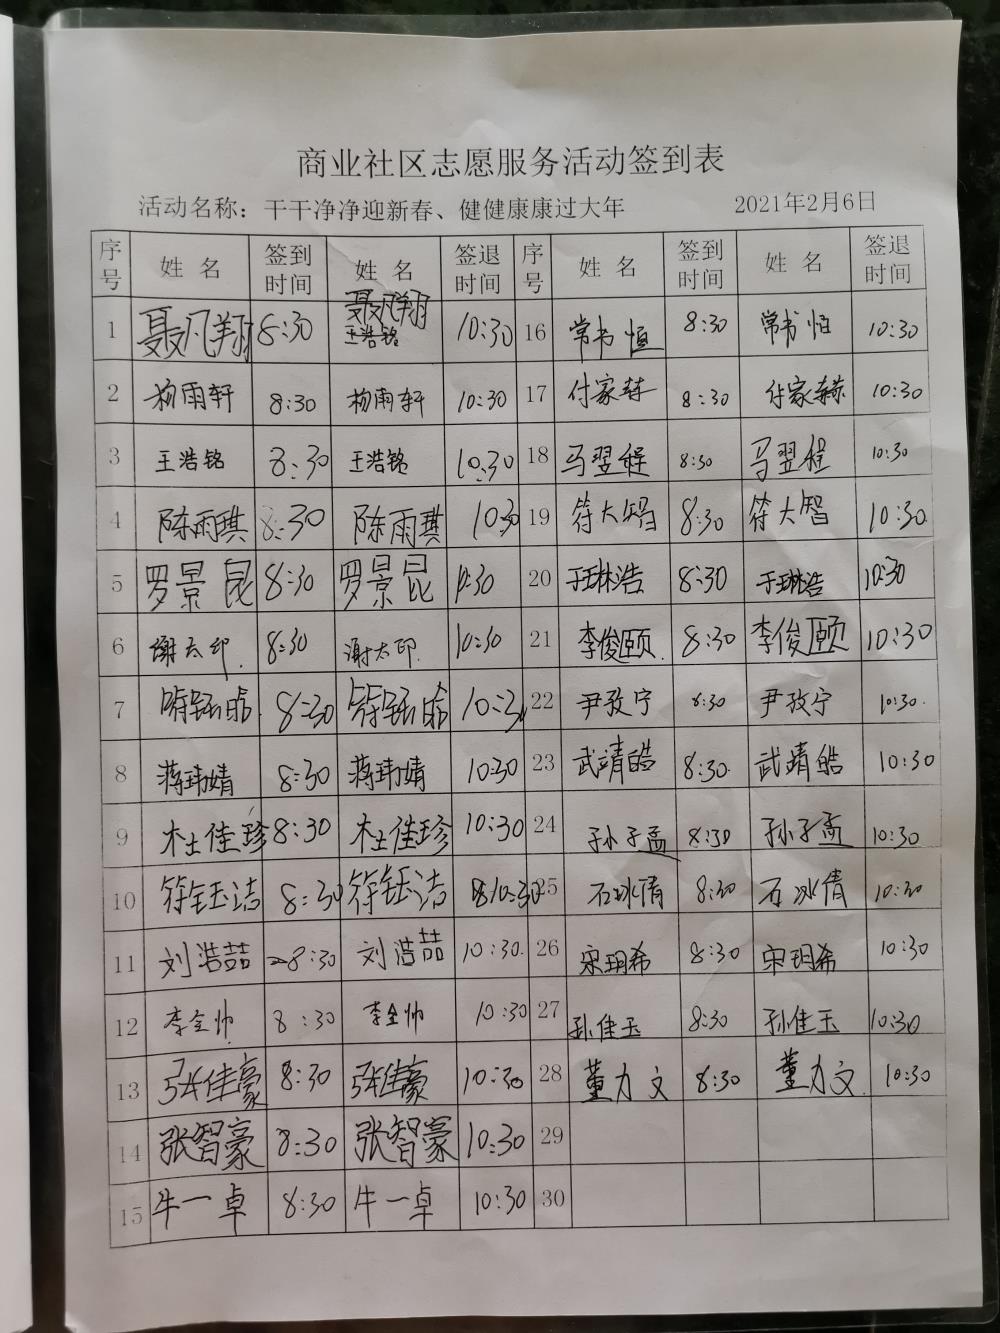 商业社区志愿服务活动签到表
活动名称：干干净净迎新春、健健康康过大年 2021年2月6日
序号 姓 名 签到时间 姓 名 签退时间 序号 姓 名 签到时间 姓 名 签退时间
1 聂凡翔 8:30 聂凡翔 王浩铭 10:30 16 常书恒 8:30 常书恒 10:30
2 杨雨轩 8:30 杨雨轩 10:30 17 付家 8:30 付家 10:30
3 王浩铭 8:30 王浩铭 10:30 18 马翌程 8:30 马翌程 10:30
4 陈雨琪 8:30 陈雨琪 10:30 19 符大智 8:30 符大智 10:30
5 罗景昆 8:30 罗景昆 10:30 20 于琳浩 8:30 于琳浩 10:30
6 谢太印 8:30 谢太印 10:30 21 李俊颐 8:30 李俊颐 10:30
7 8:30 10:30 22 尹孜宁 8:30 尹孜宁 10:30
8 蒋玮婧 8:30 蒋玮婧 10:30 23 武靖皓 8:30 武靖皓 10:30
9 杜佳珍 8:30 杜佳珍 10:30 24 孙子孟 8:30 孙子孟 10:30
10 符钰洁 8:30 符钰洁 10:30 25 石冰倩 8:30 石冰倩 10:30
11 刘浩喆 8:30 刘浩喆 10:30 26 宋玥希 8:30 宋玥希 10:30
12 李全帅 8:30 李全帅 10:30 27 孙佳玉 8:30 孙佳玉 10:30
13 张佳豪 8:30 张佳豪 10:30 28 董力文 8:30 董力文 10:30
14 张智豪 8:30 张智豪 10:30 29
15 牛一卓 8:30 牛一卓 10:30 30